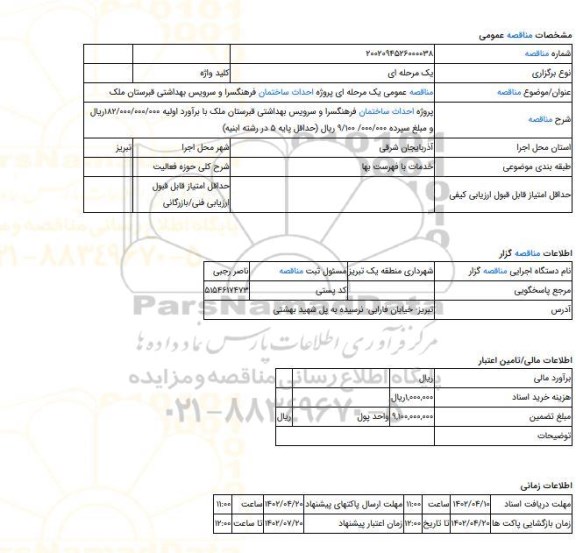 مشخصات مناقصه عمومی
شماره مناقصه ۲۰۰۲۰۹۴۵۲۶۰۰۰۰۳۸
نوع برگزاری یک مرحله ای کلید واژه
عنوان/موضوع مناقصه مناقصه عمومی یک مرحله ای پروژه احداث ساختمان فرهنگسرا و سرویس بهداشتی قبرستان ملک
شرح مناقصه پروژه احداث ساختمان فرهنگسرا و سرویس بهداشتی قبرستان ملک با برآورد اولیه ۱۸۲/۰۰۰/۰۰۰/۰۰۰ریال
و مبلغ سپرده ۰۰۰/۰۰۰/ ۹/۱۰۰ ریال (حداقل پایه ۵ در رشته ابنیه)
استان محل اجرا آذربایجان شرقی شهر محل اجرا تبریز
طبقه بندی موضوعی خدمات با فهرست بها شرح کلی حوزه فعالیت
حداقل امتیاز قابل قبول ارزیابی کیفی حداقل امتیاز قابل قبول
ارزیابی فنی/بازرگانی
اطلاعات مناقصه گزار
نام دستگاه اجرایی مناقصه گزار شهرداری منطقه یک تبریز مسئول ثبت مناقصه ناصر رجبی
مرجع پاسخگویی کد پستی ۵۱۵۴۶۱۷۴۷۳
آدرس تبریز- خیابان فارابی- نرسیده به پل شهید بهشتی
ParsNamadData
مرکز فرآوری اطلاعات پارس نماد داده ها
اطلاعات مالی/تامین اعتبار
پایگاه اطلاع رسانی مناقصه و مزایده
برآورد مالی ریال
هزینه خرید اسناد ۱,۰۰۰,۰۰۰ریال
مبلغ تضمین ۹,۱۰۰,۰۰۰,۰۰۰ واحد پول ریال
۰۲۱-۸۸۳۴۹۶۷۰-۵
توضیحات
اطلاعات زمانی
مهلت دریافت اسناد ۱۴۰۲/۰۴/۱۰ ساعت ۱۱:۰۰ مهلت ارسال پاکتهای پیشنهاد ۱۴۰۲/۰۴/۲۰ ساعت ۱۱:۰۰
زمان بازگشایی پاکت ها ۱۴۰۲/۰۴/۲۰ تا تاریخ ۱۲:۰۰ زمان اعتبار پیشنهاد ۱۴۰۲/۰۷/۲۰ تا ساعت ۱۲:۰۰